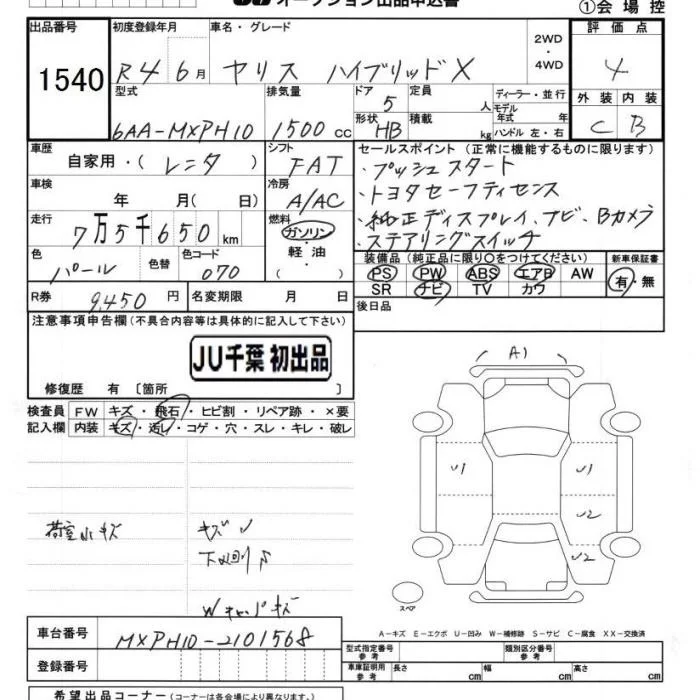 オークション出品申込書
①会場控
出品番号 1540
初度登録年月 R4 6月
車名・グレード ヤリス ハイブリッドX
2WD・4WD
評価点 4
型式 6AA-MXPH10
排気量 1500 cc
ドア 5
形状 HB
定員 人
積載 kg
ディーラー・並行
モデル年式 年
ハンドル 左・右
外装 C
内装 B
車歴 自家用・(レンタ)
シフト FAT
車検 年 月(日)
冷房 A/AC
走行 7万5千650km
燃料 ガソリン・軽油・( )
色 パール
色替
色コード 070
セールスポイント(正常に機能するものに限ります)
・プッシュスタート
・トヨタセーフティセンス
・純正ディスプレイ、ナビ、Bカメラ
・ステアリングスイッチ
装備品(純正品に限り○をつけてください)
PS PW ABS エアB AW
SR ナビ TV カワ
新車保証書 有・無
R券 9,450円
名変期限 月 日
後日品
注意事項申告欄(不具合内容等は具体的に記入して下さい)
JU千葉 初出品
修復歴 有 〔箇所 〕
検査員記入欄
FW キズ・飛石・ヒビ割・リペア跡・×要
内装 キズ・汚レ・コゲ・穴・スレ・キレ・破レ
A1
U1 U1
U2
U2
スペア
荷室小キズ
キズ
下回り
Wキャパキズ
A-キズ E-エクボ U-凹み W-補修跡 S-サビ C-腐食 XX-交換済
車台番号 MXPH10-2101568
登録番号
型式指定番号 参考
類別区分番号 参考
車庫証明用 参考 長さ cm 幅 cm 高さ cm
希望出品コーナー(コーナーは各会場により異なります。)